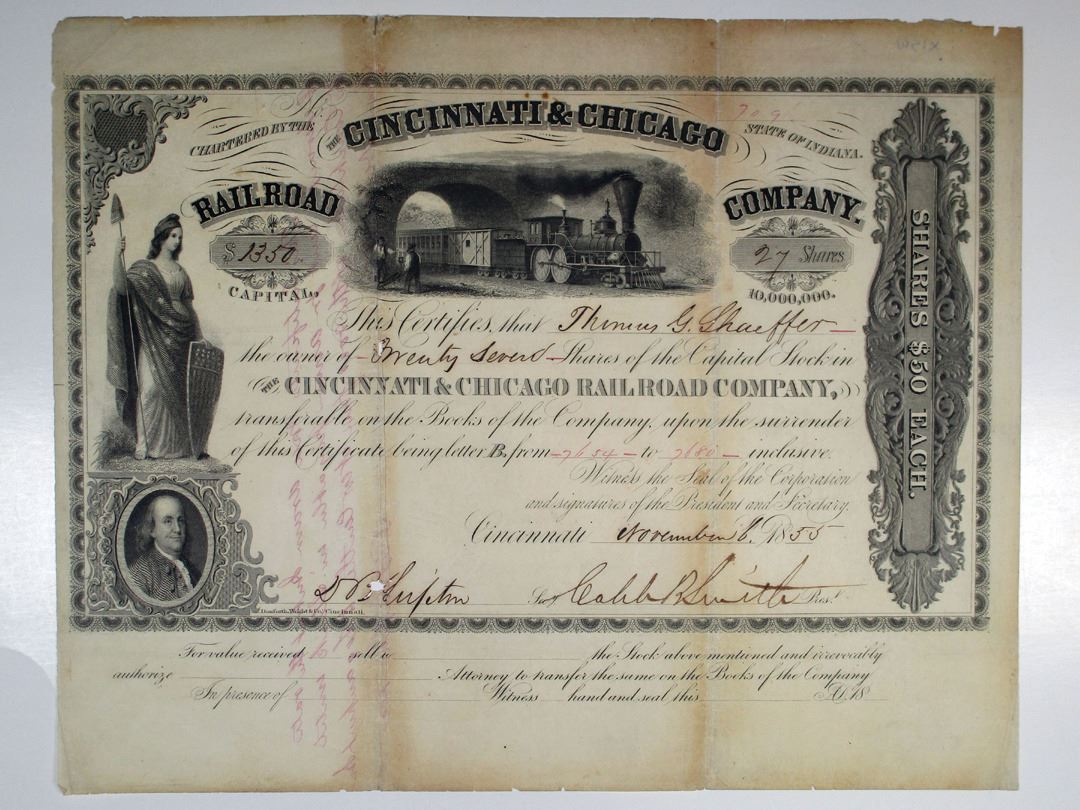 709
CHARTERED BY THE
THE CINCINNATI & CHICAGO
STATE OF INDIANA.
RAILROAD
COMPANY.
$ 1350.
27 Shares
CAPITAL,
10,000,000.
SHARES $50 EACH.
This Certifies, that Thomas G. Shaeffer
the owner of Twenty Seven Shares of the Capital Stock in
THE CINCINNATI & CHICAGO RAILROAD COMPANY,
transferable on the Books of the Company, upon the surrender
of this Certificate being letter B, from 7654 to 7680 inclusive.
Witness the Seal of the Corporation
and signatures of the President and Secretary.
Cincinnati November 8. 1855
Secy Caleb B Smith Prest.
Danforth, Wright & Co., Cincinnati.
For value received sell to the Stock above mentioned and irrevocably
authorize Attorney to transfer the same on the Books of the Company
In presence of Witness hand and seal this A.D. 18